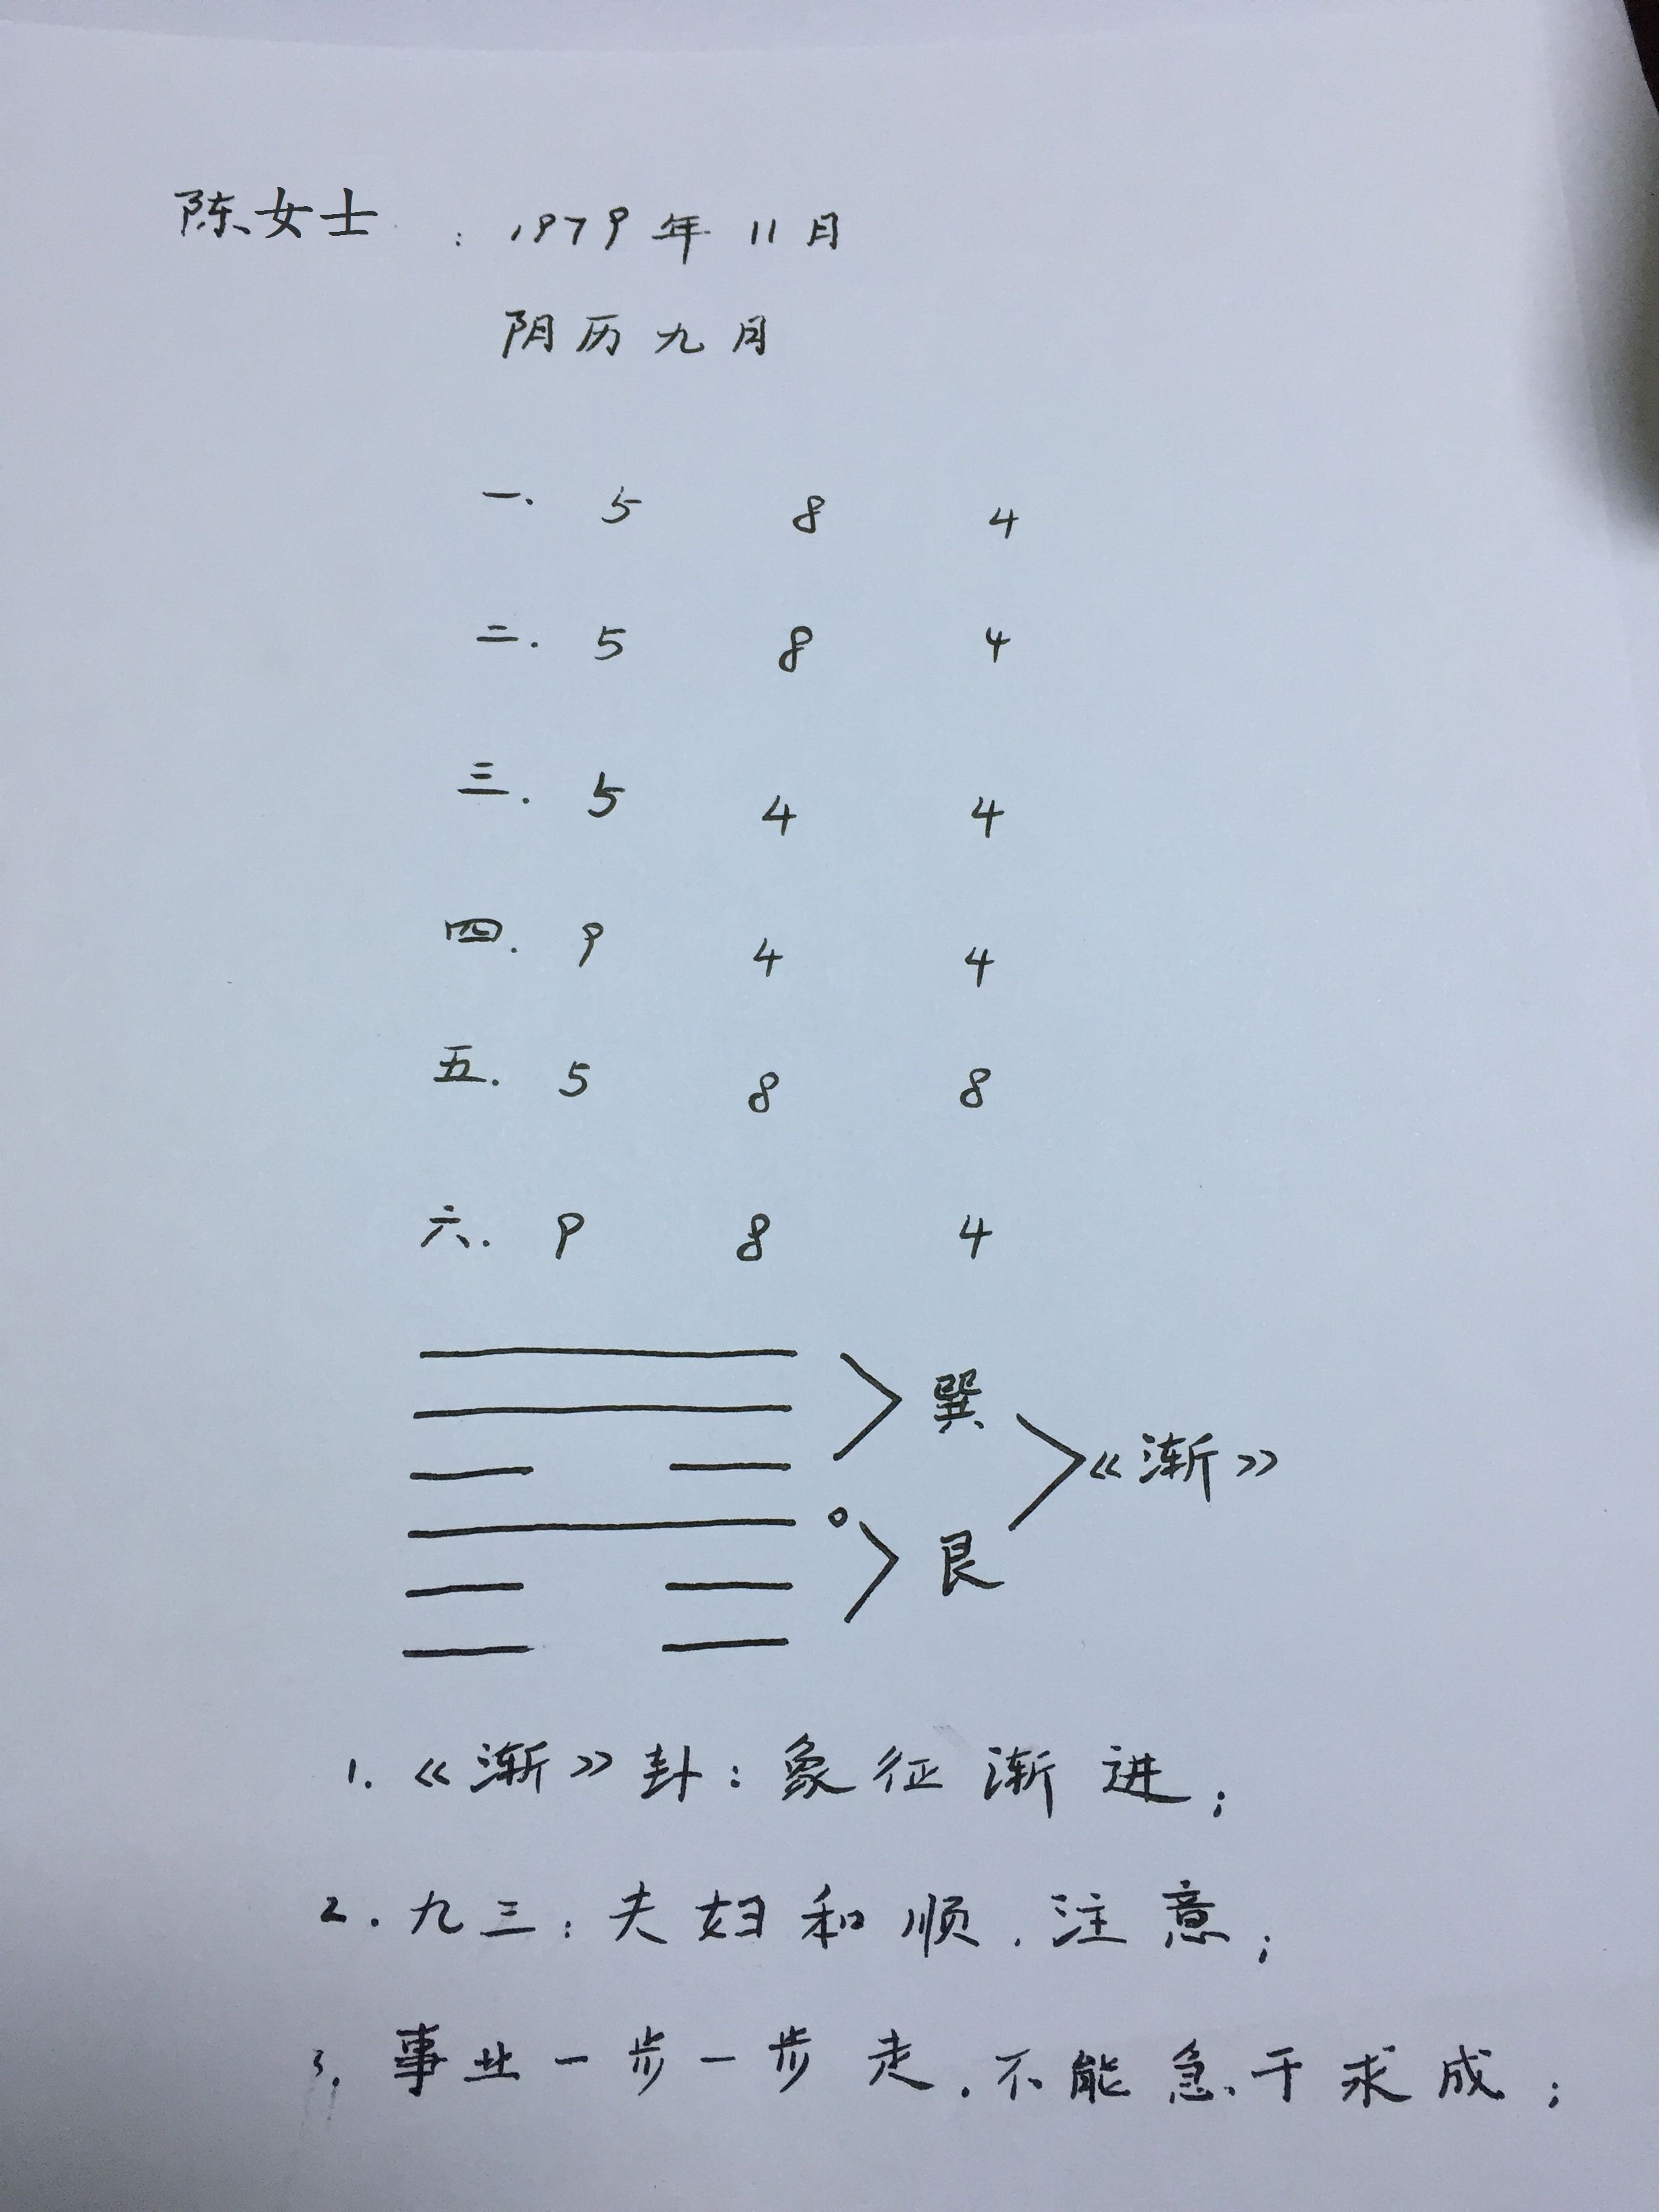 陈女士：1979年11月
阴历九月
一. 5 8 4
二. 5 8 4
三. 5 4 4
四. 9 4 4
五. 5 8 8
六. 9 8 4
巽
《渐》
艮
1.《渐》卦：象征渐进；
2.九三：夫妇和顺.注意；
3.事业一步一步走.不能急于求成；